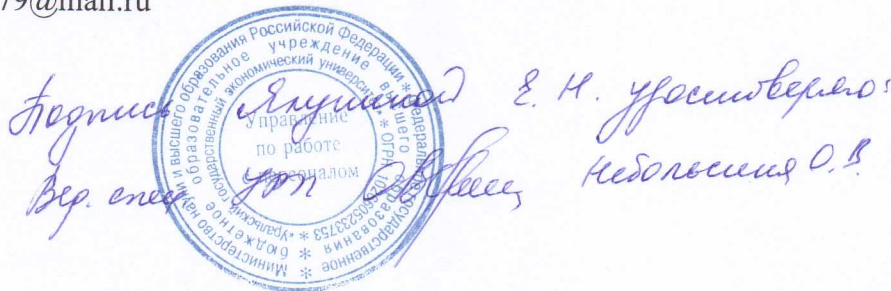 79@mail.ru
Подпись Якушиной Е. Н. удостоверяю:
Вед. спец. УРП Небольсина О.В.
Министерство науки и высшего образования Российской Федерации * Федеральное государственное
бюджетное образовательное учреждение высшего образования *
«Уральский государственный экономический университет» * ОГРН 1026605233753
Управление
по работе
с персоналом